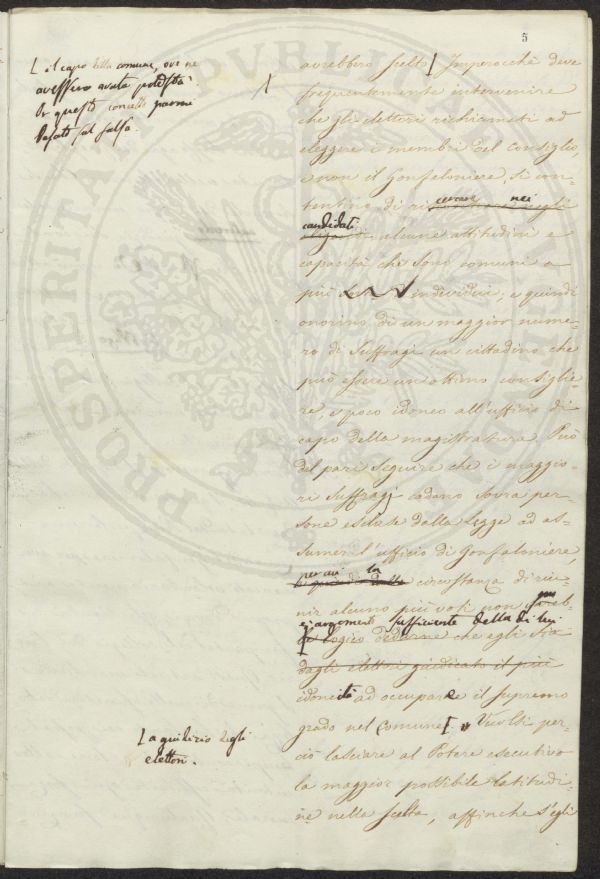 5
[ il capo della comune, ove ne
avessero avuta potestà.
Or questo concetto parmi
basato sul falso.
avrebbero scelto [ Imperocchè deve
frequentemente intervenire
che gli elettori richiamati ad
eleggere i membri del consiglio,
e non il Gonfaloniere, si con-
tentino di cercare nei
candidati
alcune attitudini e
capacità che sono comuni a
più individui, e quindi
onorino di un maggior nume-
ro di suffragi un cittadino che
può essere un ottimo consiglie-
re, e poco idoneo all'ufficio di
capo della magistratura. Può
del pari seguire che i maggio-
ri suffragi cadano sovra per-
sone escluse dalla legge ad as-
sumer l'ufficio di Gonfaloniere,
per cui la circostanza di riu-
nir alcuno più voti non
è argomento sufficiente della di lui
logico dedurne che egli sia
dagli elettori giudicato il più
idoneità ad occupare il supremo
grado nel comune [ Vuolsi per-
ciò lasciare al Potere esecutivo
la maggior possibile latitudi-
ne nella scelta, affinchè s'egli
[ a giudizio degli
elettori.
PROSPERITATI PVBLICAE